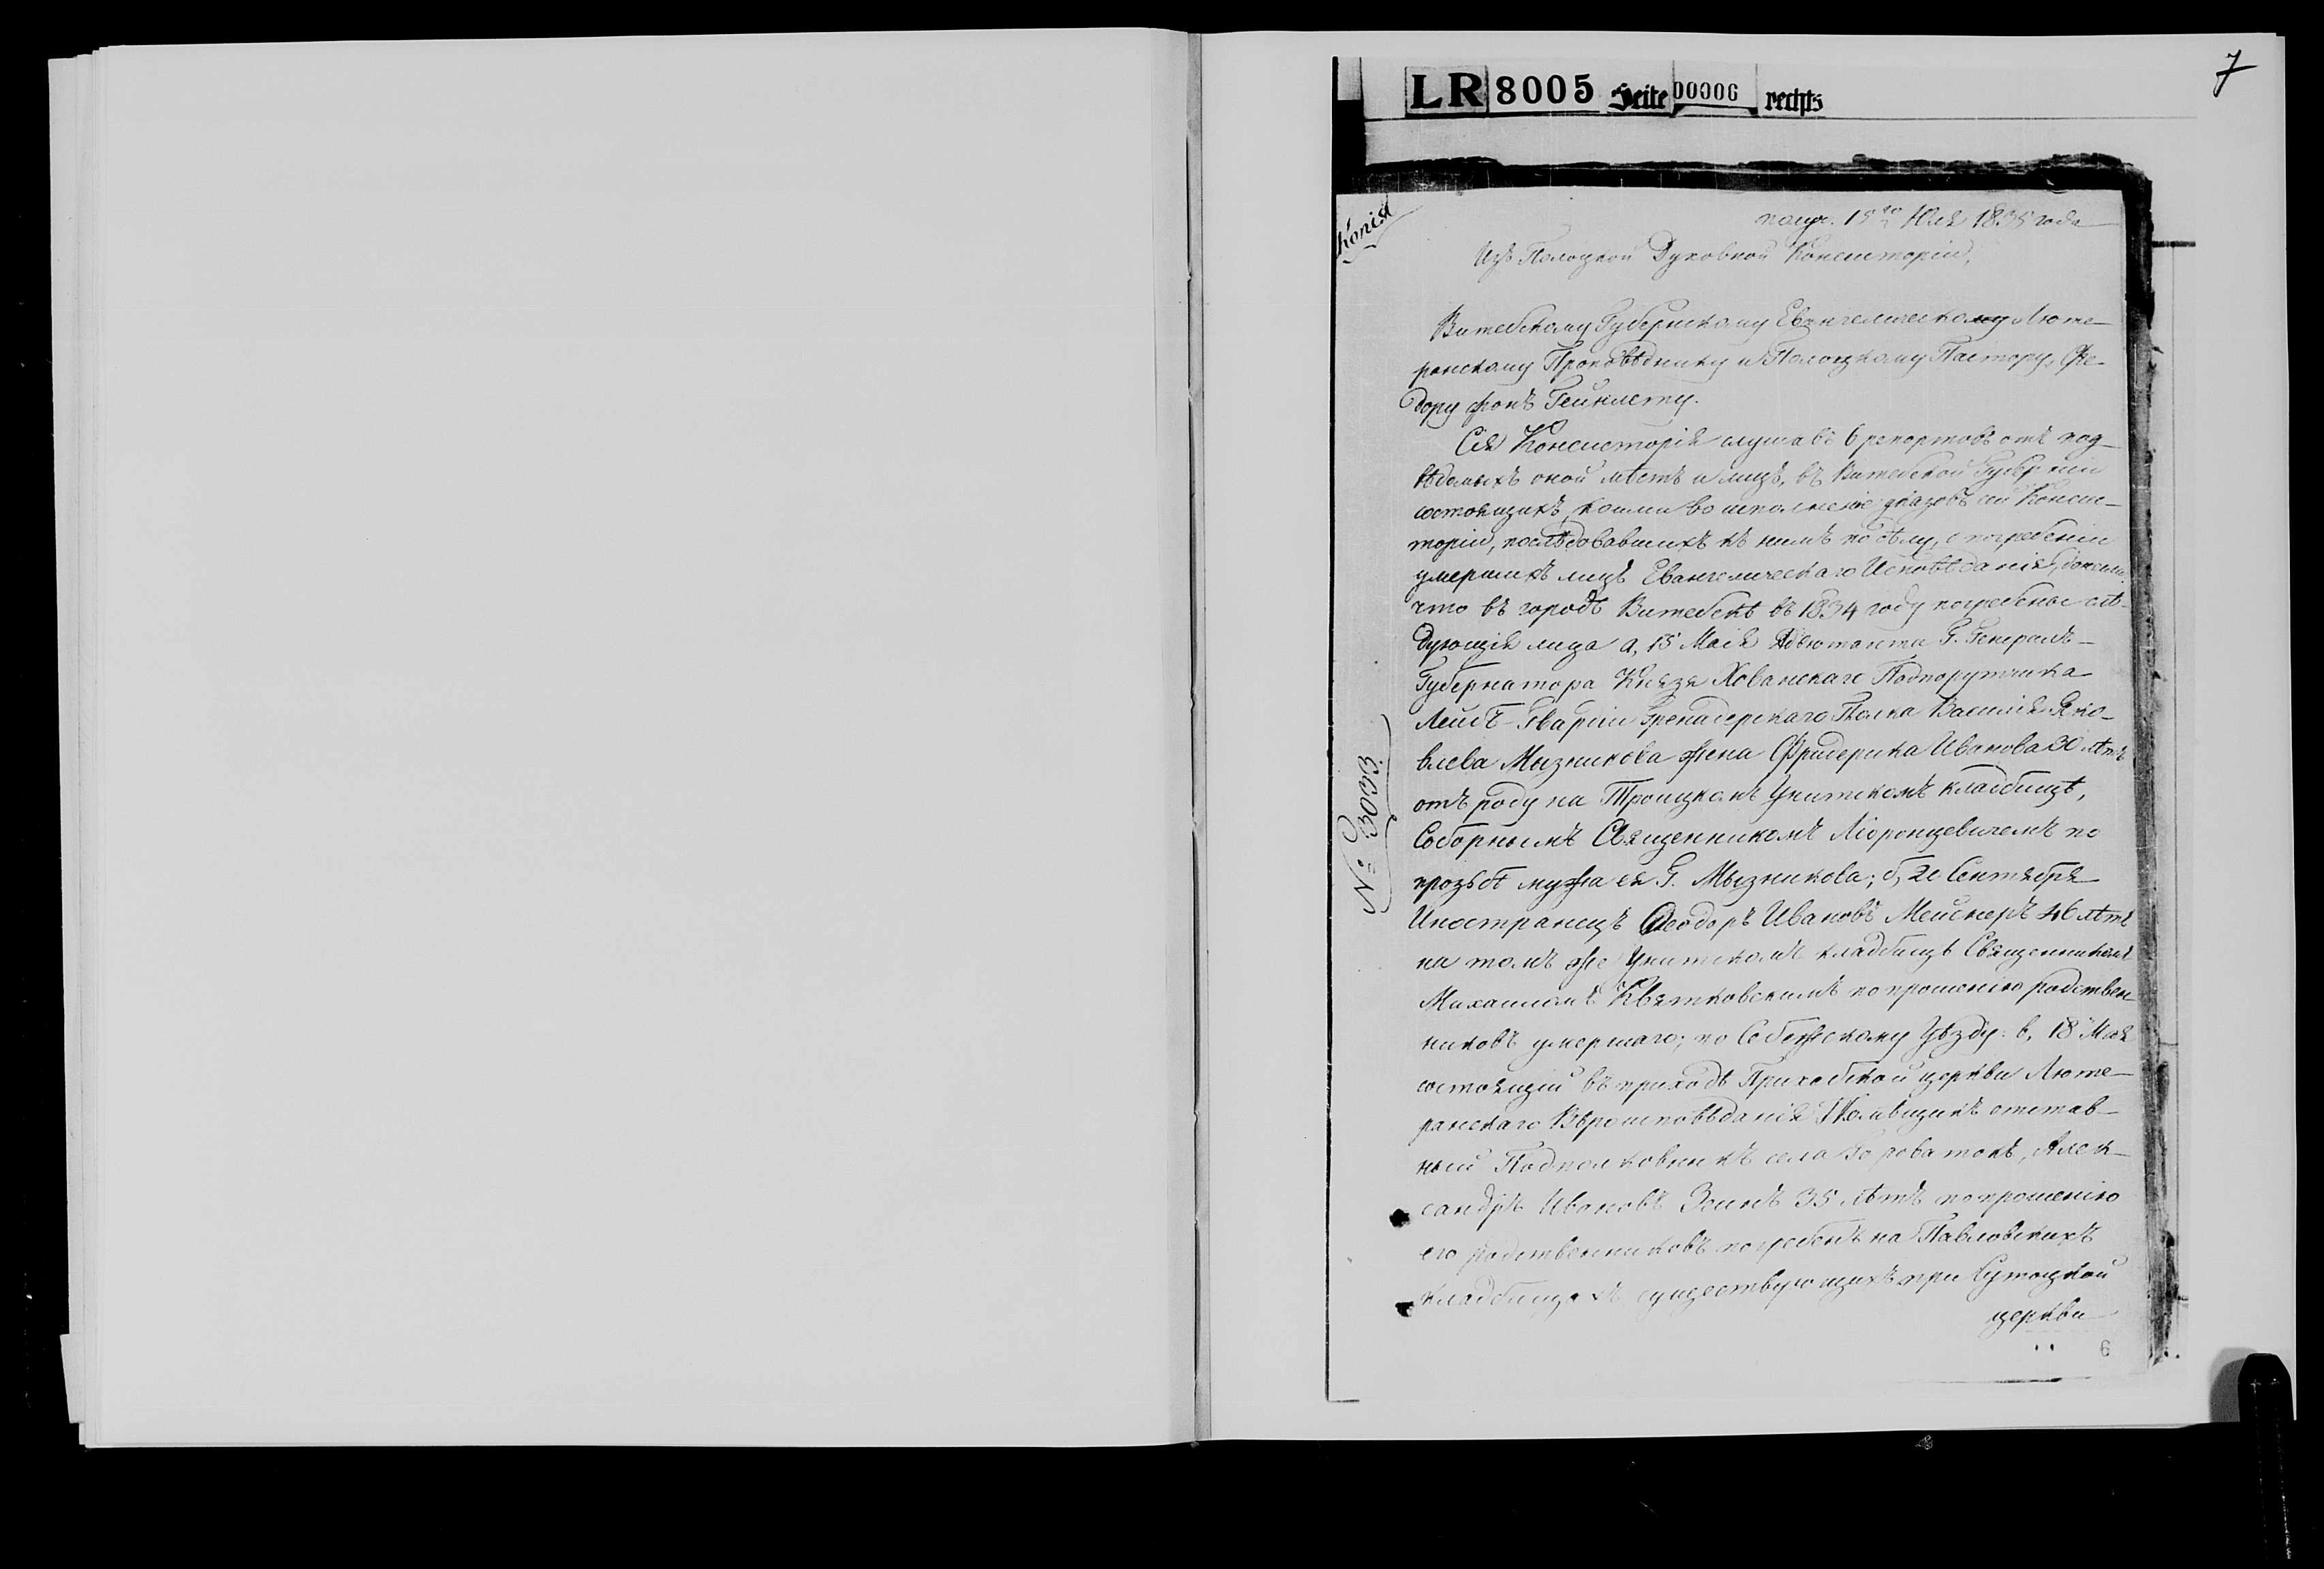 7
LR 8005 Seite 00006 rechts
Копія
получ. 15го Юля 1835 года
Изъ Полоцкой Духовной Консисторіи,
Витебскому Губернскому Евангелическому Люте-
ранскому Проповѣднику и Полоцкому Пастору, Фе-
дору фонъ
Сія Консисторія слушавъ 6 репортовъ отъ под-
вѣдомыхъ оной мѣстъ и лицъ, въ Витебской Губерніи
состоящихъ, коими во исполненіе указовъ сей Консис-
торіи, послѣдовавшихъ къ нимъ по дѣлу, о погребеніи
умершихъ лицъ Евангелическаго Исповѣданія,
что въ городѣ Витебскѣ въ 1834 году погребены слѣ-
дующія лица а, 15 Маія Адъютанта Г. Генералъ-
Губернатора Князя Хованскаго Подпоручика
Лейбъ-Гвардіи Гренадерскаго Полка Василія Яко-
влева Мызникова жена Фридерика Иванова 30 лѣтъ
отъ роду на Троицкомъ Унитскомъ кладбищѣ,
Соборнымъ Священникомъ по
прозьбѣ мужа ея Г. Мызникова; б, 20 Сентября
Иностранецъ Ѳеодоръ Ивановъ Мейснеръ 46 лѣтъ
на томъ же Унитскомъ кладбищѣ Священникомъ
Михаиломъ Квятковскимъ по прошенію родствен-
никовъ умершаго; по Себежскому Уѣзду: в, 18 Мая
состоящій въ приходѣ Прихабской церкви Люте-
ранскаго Вѣроисповѣданія Помѣщикъ отстав-
ный Подполковникъ села Алек-
сандръ Ивановъ 35 лѣтъ по прошенію
его родственниковъ погребенъ на Павловскихъ
кладбищахъ существующихъ при
церкви
№ 3033
6